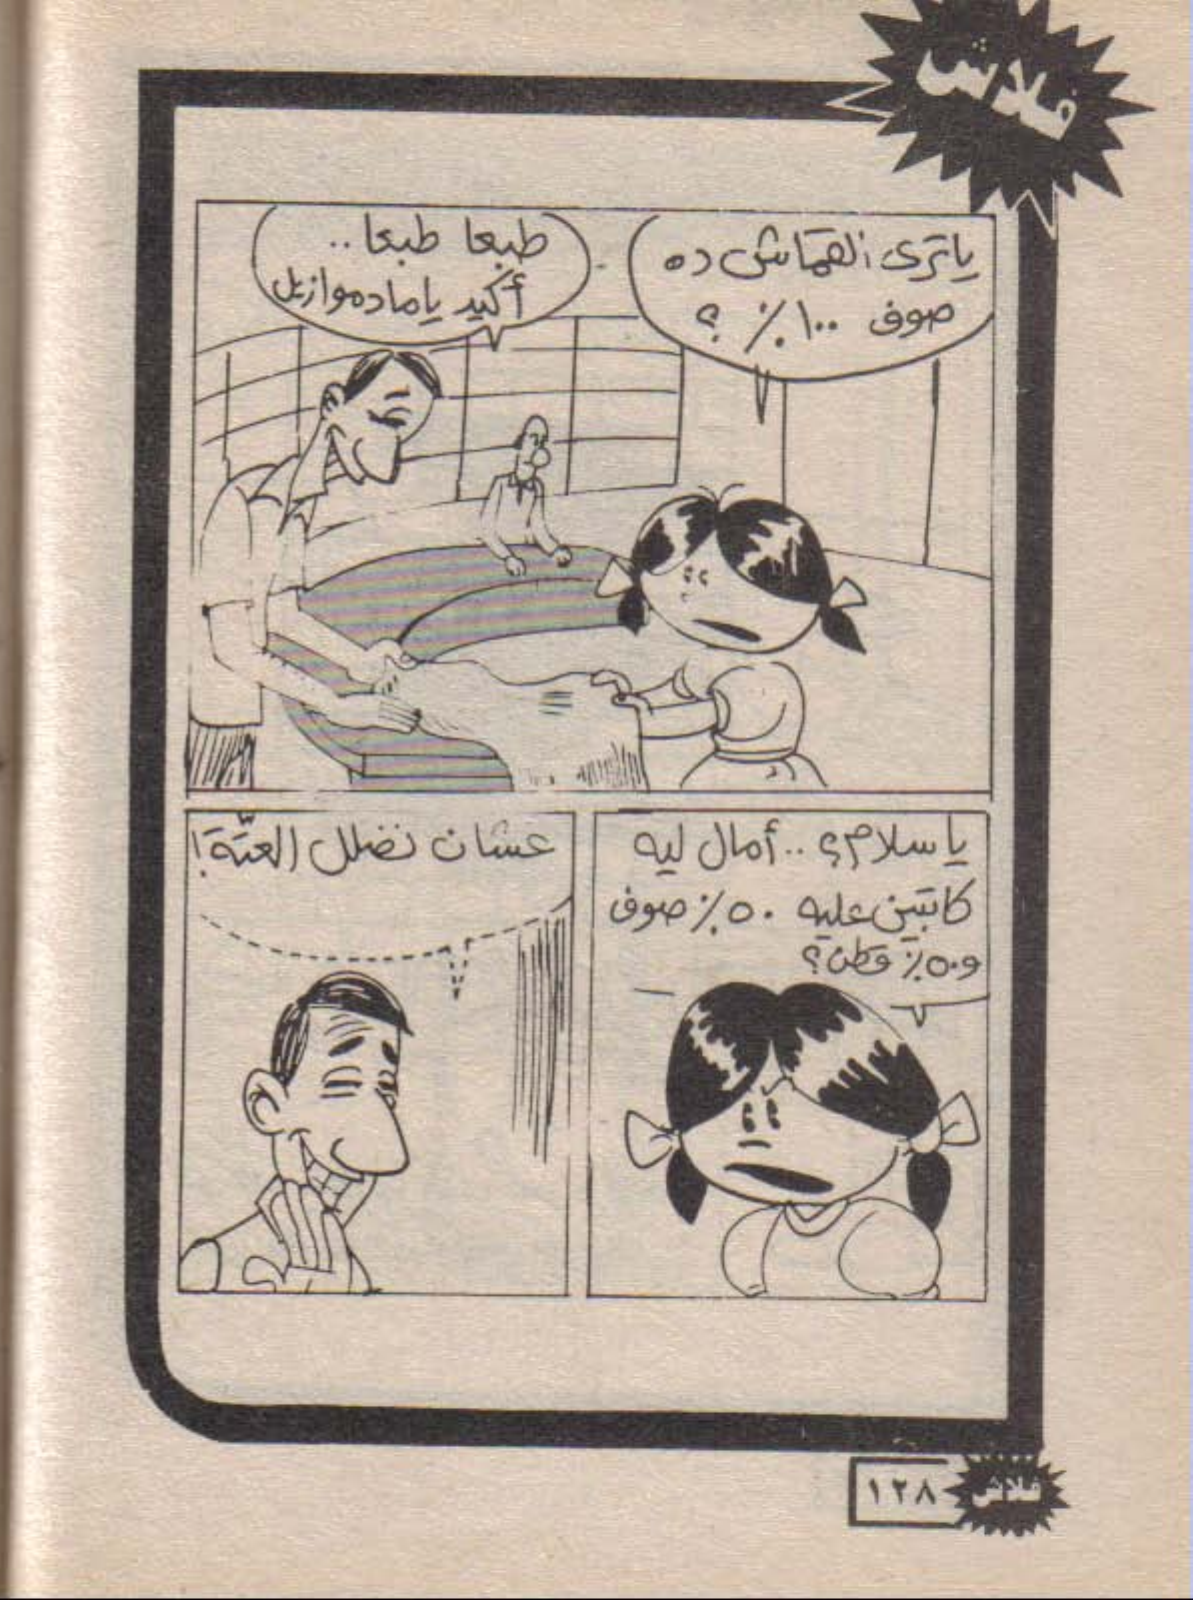 فلاش
ياترى القماش ده
صوف ١٠٠٪ ؟
طبعا طبعا ..
أكيد ياماده موازيل
يا سلام؟ .. أمال ليه
كاتبين عليه ٥٠٪ صوف
و٥٠٪ قطن؟
عشان نضلل العتة!
فلاش
١٢٨